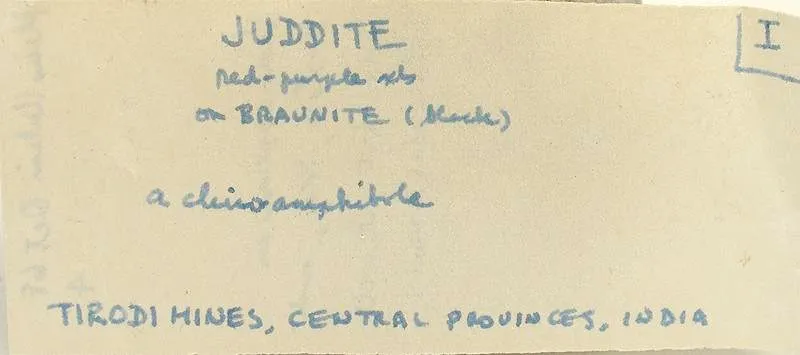 JUDDITE
I
red-purple xls
on BRAUNITE (black)
a clinoamphibole
TIRODI MINES, CENTRAL PROVINCES, INDIA